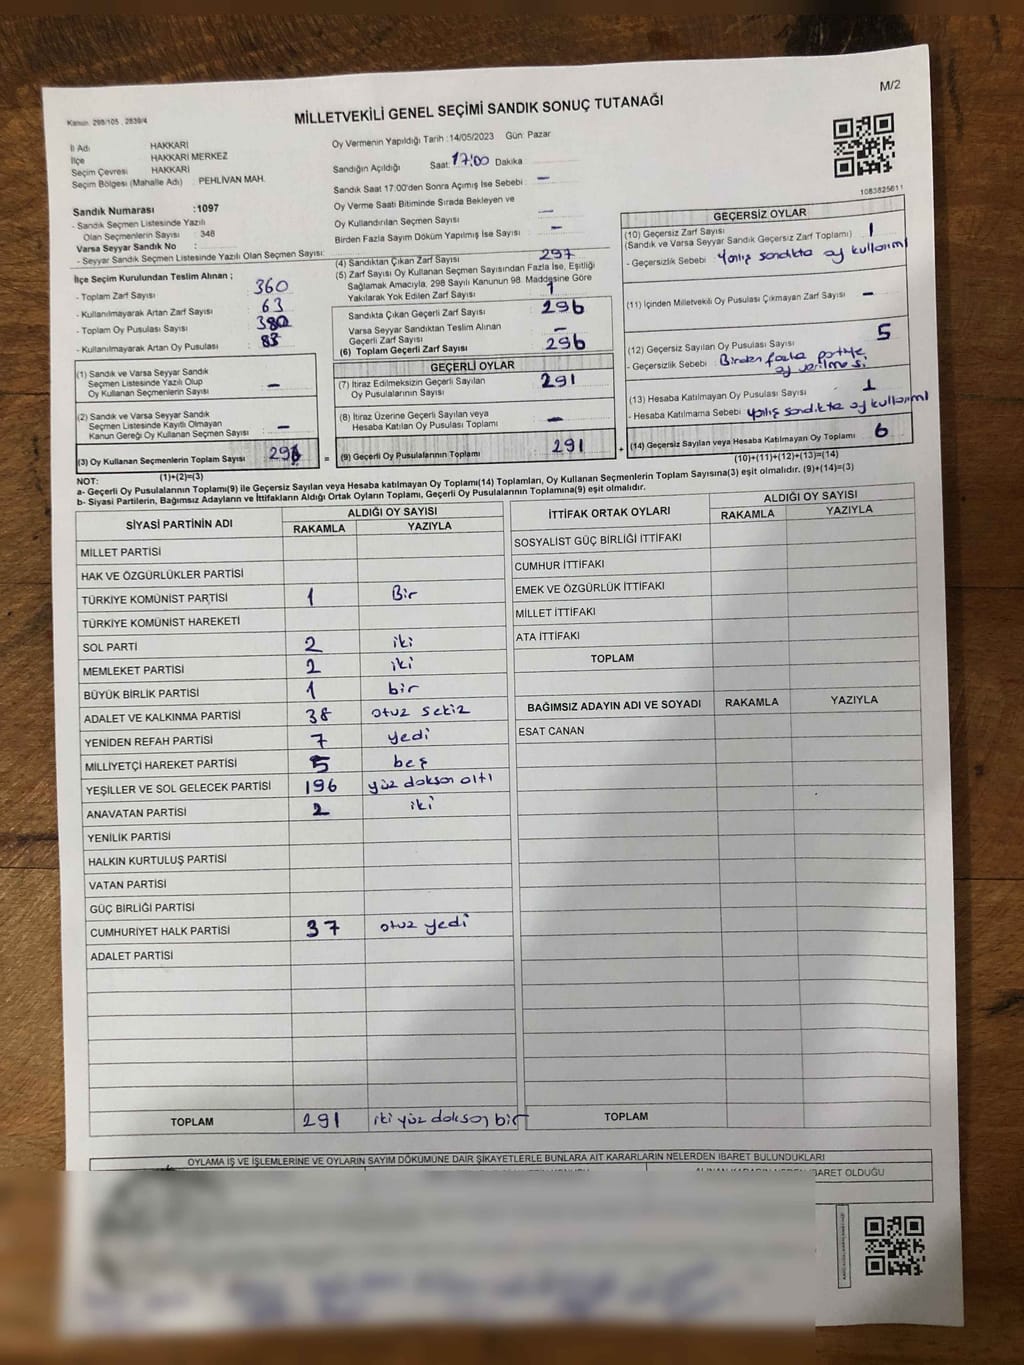 M/2
Kanun. 298/105 , 2839/4
MİLLETVEKİLİ GENEL SEÇİMİ SANDIK SONUÇ TUTANAĞI
İl Adı HAKKARİ
İlçe HAKKARİ MERKEZ
Seçim Çevresi HAKKARİ
Seçim Bölgesi (Mahalle Adı) : PEHLİVAN MAH.
Sandık Numarası :1097
- Sandık Seçmen Listesinde Yazılı
Olan Seçmenlerin Sayısı : 348
Varsa Seyyar Sandık No :
- Seyyar Sandık Seçmen Listesinde Yazılı Olan Seçmen Sayısı:
İlçe Seçim Kurulundan Teslim Alınan ;
- Toplam Zarf Sayısı : 360
- Kullanılmayarak Artan Zarf Sayısı : 63
- Toplam Oy Pusulası Sayısı : 380
- Kullanılmayarak Artan Oy Pusulası : 83
(1) Sandık ve Varsa Seyyar Sandık
Seçmen Listesinde Yazılı Olup
Oy Kullanan Seçmenlerin Sayısı : –
(2) Sandık ve Varsa Seyyar Sandık
Seçmen Listesinde Kayıtlı Olmayan
Kanun Gereği Oy Kullanan Seçmen Sayısı : –
(3) Oy Kullanan Seçmenlerin Toplam Sayısı
(1)+(2)=(3)
Oy Vermenin Yapıldığı Tarih :14/05/2023 Gün: Pazar
Sandığın Açıldığı Saat: 17:00 Dakika
Sandık Saat 17:00'den Sonra Açımış İse Sebebi : –
Oy Verme Saati Bitiminde Sırada Bekleyen ve
Oy Kullandırılan Seçmen Sayısı : –
Birden Fazla Sayım Döküm Yapılmış İse Sayısı : –
(4) Sandıktan Çıkan Zarf Sayısı : 297
(5) Zarf Sayısı Oy Kullanan Seçmen Sayısından Fazla İse, Eşitliği
Sağlamak Amacıyla, 298 Sayılı Kanunun 98. Maddesine Göre
Yakılarak Yok Edilen Zarf Sayısı : 1
Sandıkta Çıkan Geçerli Zarf Sayısı : 296
Varsa Seyyar Sandıktan Teslim Alınan
Geçerli Zarf Sayısı : –
(6) Toplam Geçerli Zarf Sayısı : 296
GEÇERLİ OYLAR
(7) İtiraz Edilmeksizin Geçerli Sayılan
Oy Pusulalarının Sayısı : 291
(8) İtiraz Üzerine Geçerli Sayılan veya
Hesaba Katılan Oy Pusulası Toplamı : –
= (9) Geçerli Oy Pusulalarının Toplamı : 291
1083825611
GEÇERSİZ OYLAR
(10) Geçersiz Zarf Sayısı : 1
(Sandık ve Varsa Seyyar Sandık Geçersiz Zarf Toplamı)
- Geçersizlik Sebebi : Yanlış sandıkta oy kullanımı
(11) İçinden Milletvekili Oy Pusulası Çıkmayan Zarf Sayısı : –
(12) Geçersiz Sayılan Oy Pusulası Sayısı : 5
- Geçersizlik Sebebi : Birden fazla partiye
oy verilmesi
(13) Hesaba Katılmayan Oy Pusulası Sayısı : 1
- Hesaba Katılmama Sebebi : yanlış sandıkta oy kullanımı
+ (14) Geçersiz Sayılan veya Hesaba Katılmayan Oy Toplamı : 6
(10)+(11)+(12)+(13)=(14)
NOT:
a- Geçerli Oy Pusulalarının Toplamı(9) ile Geçersiz Sayılan veya Hesaba Katılmayan Oy Toplamı(14) Toplamları, Oy Kullanan Seçmenlerin Toplam Sayısına(3) eşit olmalıdır. (9)+(14)=(3)
b- Siyasi Partilerin, Bağımsız Adayların ve İttifakların Aldığı Ortak Oyların Toplamı, Geçerli Oy Pusulalarının Toplamına(9) eşit olmalıdır.
SİYASİ PARTİNİN ADI ALDIĞI OY SAYISI
RAKAMLA YAZIYLA
MİLLET PARTİSİ
HAK VE ÖZGÜRLÜKLER PARTİSİ
TÜRKİYE KOMÜNİST PARTİSİ 1 Bir
TÜRKİYE KOMÜNİST HAREKETİ
SOL PARTİ 2 iki
MEMLEKET PARTİSİ 2 iki
BÜYÜK BİRLİK PARTİSİ 1 bir
ADALET VE KALKINMA PARTİSİ 38 otuz sekiz
YENİDEN REFAH PARTİSİ 7 yedi
MİLLİYETÇİ HAREKET PARTİSİ 5 beş
YEŞİLLER VE SOL GELECEK PARTİSİ 196 yüz doksan altı
ANAVATAN PARTİSİ 2 iki
YENİLİK PARTİSİ
HALKIN KURTULUŞ PARTİSİ
VATAN PARTİSİ
GÜÇ BİRLİĞİ PARTİSİ
CUMHURİYET HALK PARTİSİ 37 otuz yedi
ADALET PARTİSİ
TOPLAM 291 iki yüz doksan bir
İTTİFAK ORTAK OYLARI ALDIĞI OY SAYISI
RAKAMLA YAZIYLA
SOSYALIST GÜÇ BİRLİĞİ İTTİFAKI
CUMHUR İTTİFAKI
EMEK VE ÖZGÜRLÜK İTTİFAKI
MİLLET İTTİFAKI
ATA İTTİFAKI
TOPLAM
BAĞIMSIZ ADAYIN ADI VE SOYADI RAKAMLA YAZIYLA
ESAT CANAN
TOPLAM
OYLAMA İŞ VE İŞLEMLERİNE VE OYLARIN SAYIM DÖKÜMÜNE DAİR ŞİKAYETLERLE BUNLARA AİT KARARLARIN NELERDEN İBARET BULUNDUKLARI
İBARET OLDUĞU